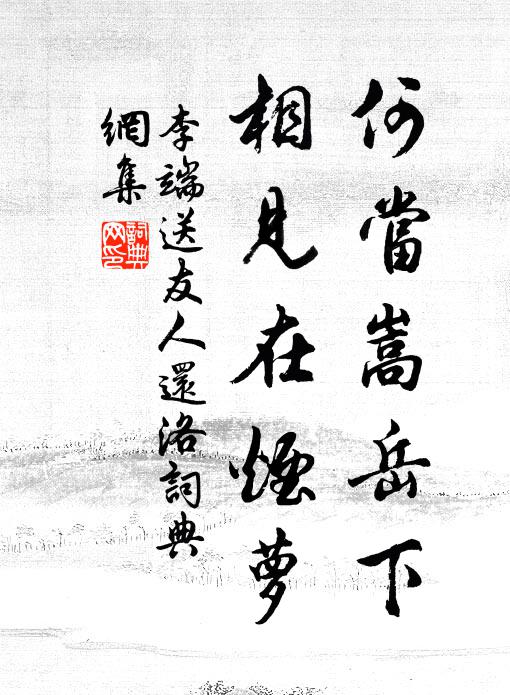 何當嵩岳下
相見在煙蘿
李端送友人還洛詞典
網集
詞典
网印